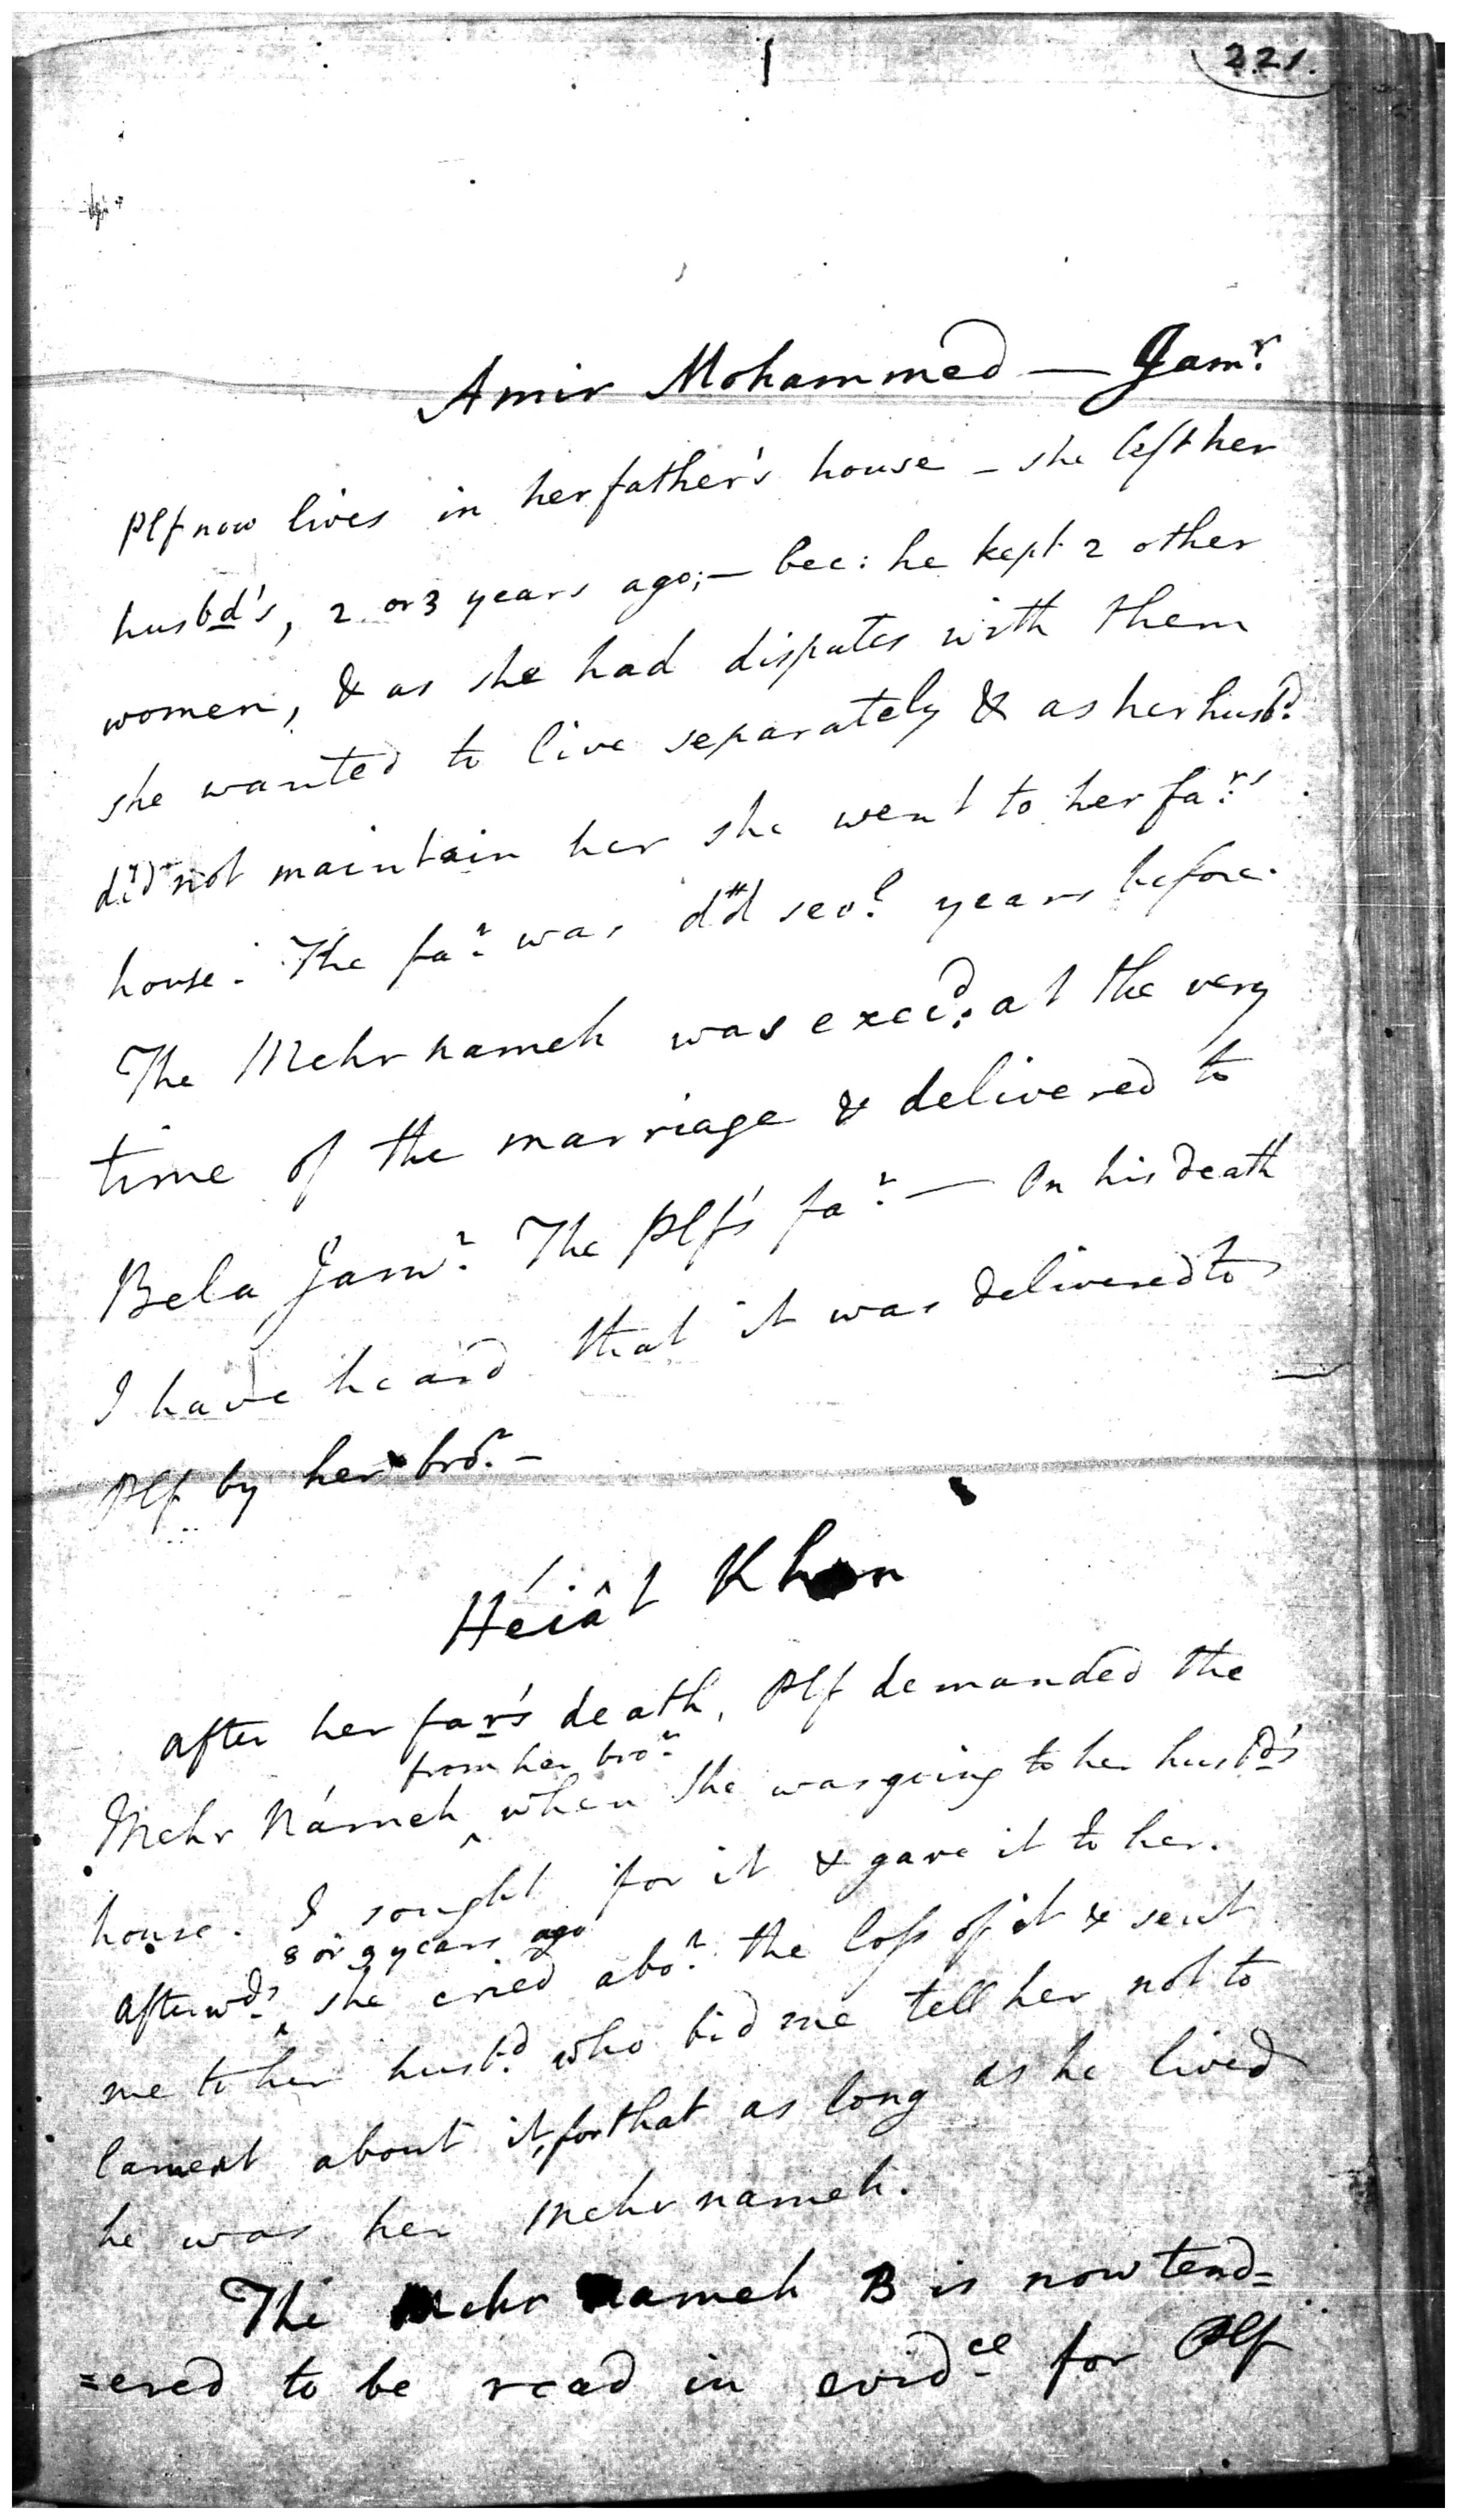 221.
Amir Mohammed — Jamr.
Plf now lives in her father's house - she left her
husbd's, 2 or 3 years ago; — bec: he kept 2 other
women, & as she had disputes with them
she wanted to live separately & as her husbd.
did not maintain her she went to her far.'s
house. The far. was dd sevl. years before.
The Mehr nameh was execd. at the very
time of the marriage & delivered to
Bela Jamr. The Plf's far. — On his death
I have heard that it was delivered to
Plf by her bror. -
Héiât Khan
after her far's death, Plf demanded the
from her bror.
Mehr Námeh ^ when she was going to her husbd's
house. I sought for it & gave it to her.
8 or 9 years ago
afterwds. ^ she cried abot. the loss of it & sent
me to her husbd. who bid me tell her not to
lament about it, for that as long as he lived
he was her Mehr nameh.
The Mehr nameh B is now tend=
=ered to be read in evidce for Plf